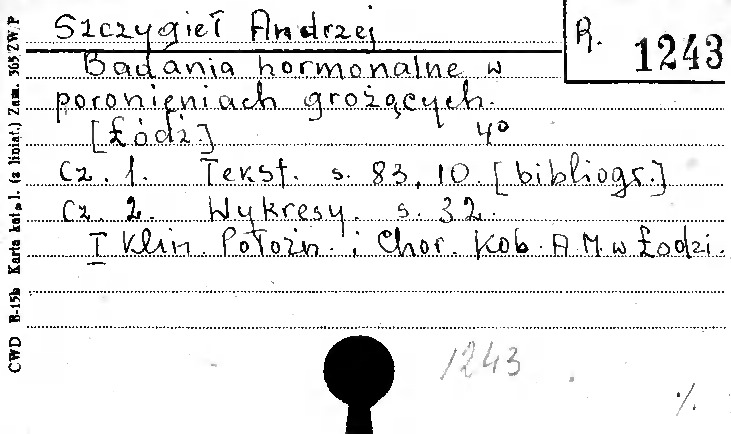 Szczygieł Andrzej
R. 1243
Badania hormonalne w
poronieniach grożących.
[Łódź.] 4°
Cz. 1. Tekst. s. 83, 10. [bibliogr.]
Cz. 2. Wykresy. s. 32.
I Klin. Położn. i Chor. Kob. A.M. w Łodzi.
1243
CWD B-15b Karta katal. (z liniat.) Zam. 505 ZW.P